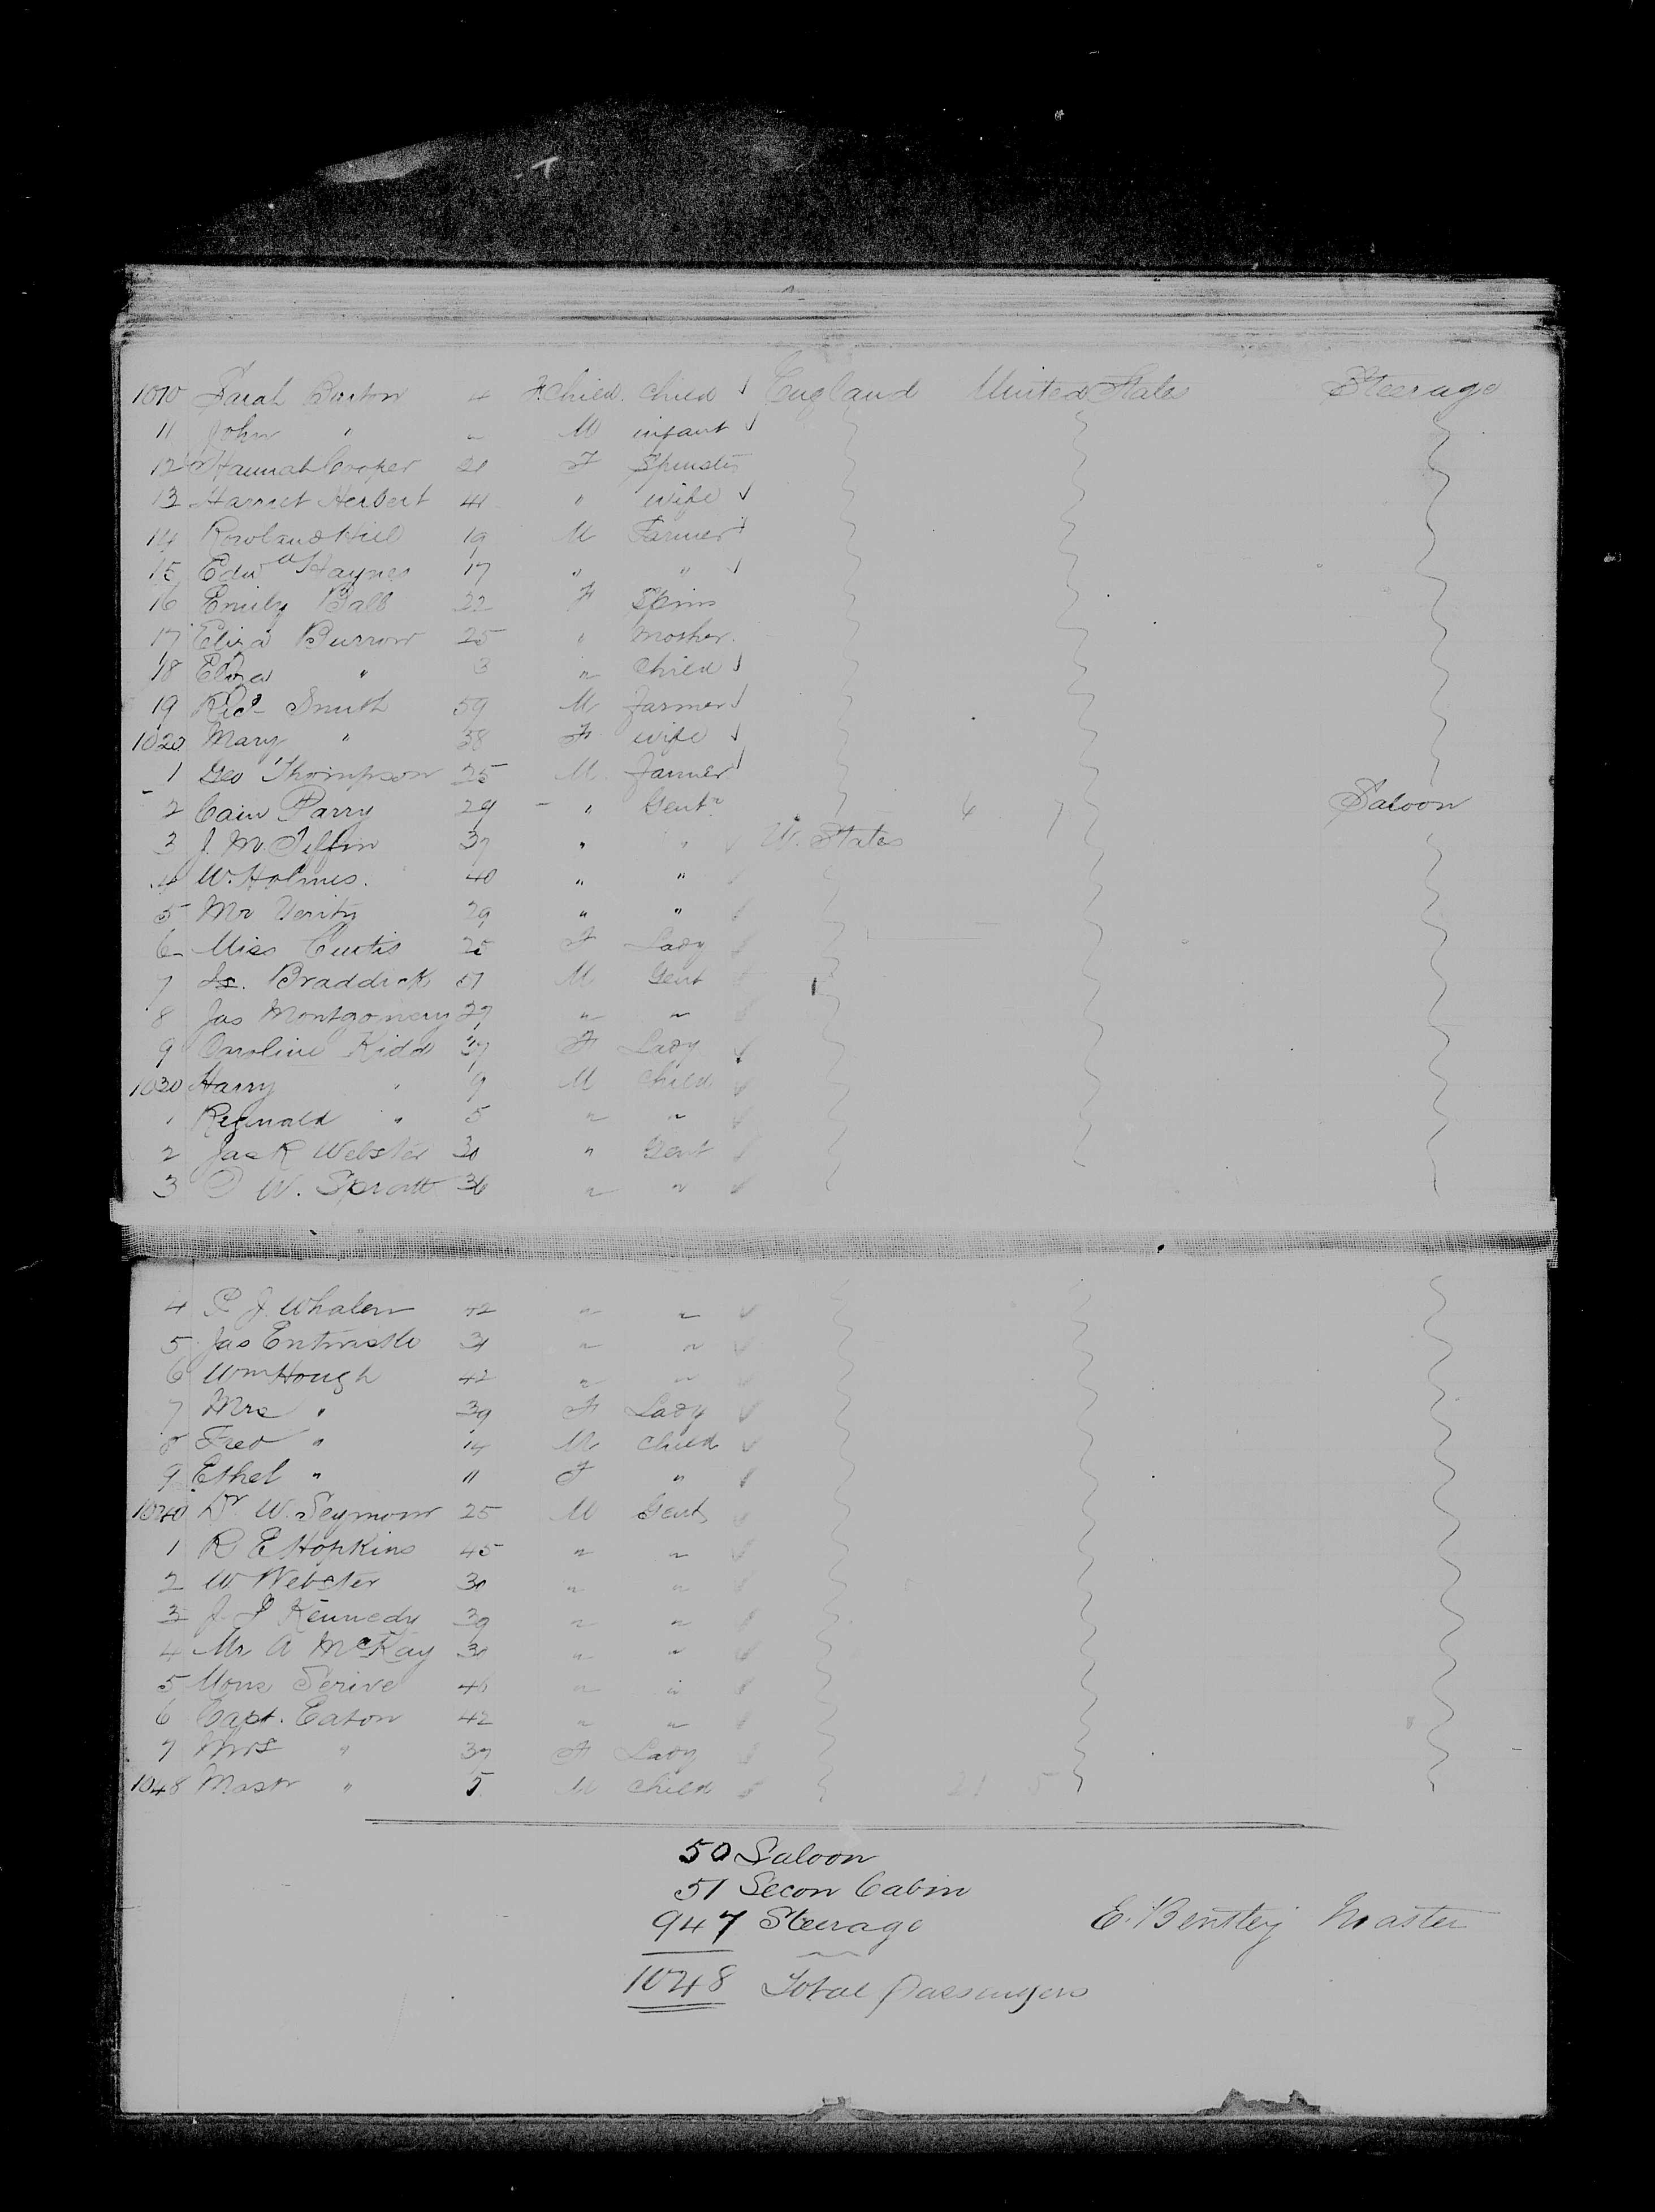 1010 Sarah Barton 4 F. Child. Child √ England United States Steerage
11 John " " M infant √
12 Hannah Cooper 21 F Spinstr
13 Harriet Herbert 41 " wife √
14 Rowland Hill 19 M Farmer √
15 Edwd Haynes 17 " " √
16 Emily Ball 22 F Spins
17 Eliza Burrow 25 " Mother.
18 Eliza " 3 " Child √
19 Ricd Smith 59 M Farmer √
1020 Mary " 58 F wife √
1 Geo Thompson 25 M. Farmer √
2 Cain Parry 29 - " Gentn 6 7 Saloon
3 J. M. Tiffin 37 " " √ U. States
4 W. Holmes. 40 " " √
5 Mr Verity 29 " " √
6 Miss Curtis 25 F Lady √
7 Braddick 51 M Gent √
8 Jas Montgomery 27 " " √
9 Caroline Kidd 37 F Lady √
1030 Harry " 9 M Child √
1 Reginald " 5 " " √
2 Jas R Webster 30 " Gent √
3 W. Spratt 36 " " √
4 P J. Whalen 42 " " √
5 Jas Entwistle 31 " " √
6 Wm Hough 42 " " √
7 Mrs " 39 F Lady √
8 Fred " 14 M Child √
9 Ethel " 11 F " √
1040 Dr W. Seymour 25 M Gent √
1 R E Hopkins 45 " " √
2 W Webster 30 " " √
3 J. Kennedy 39 " " √
4 Mr A McKay 30 " " √
5 Mons Serive 46 " " √
6 Capt. Eaton 42 " " √
7 Mrs " 37 F Lady √
1048 Mastr " 5 M Child √ 21 5
50 Saloon
51 Secon Cabin
947 Steerage E. Bentley Master
1048 Total passengers